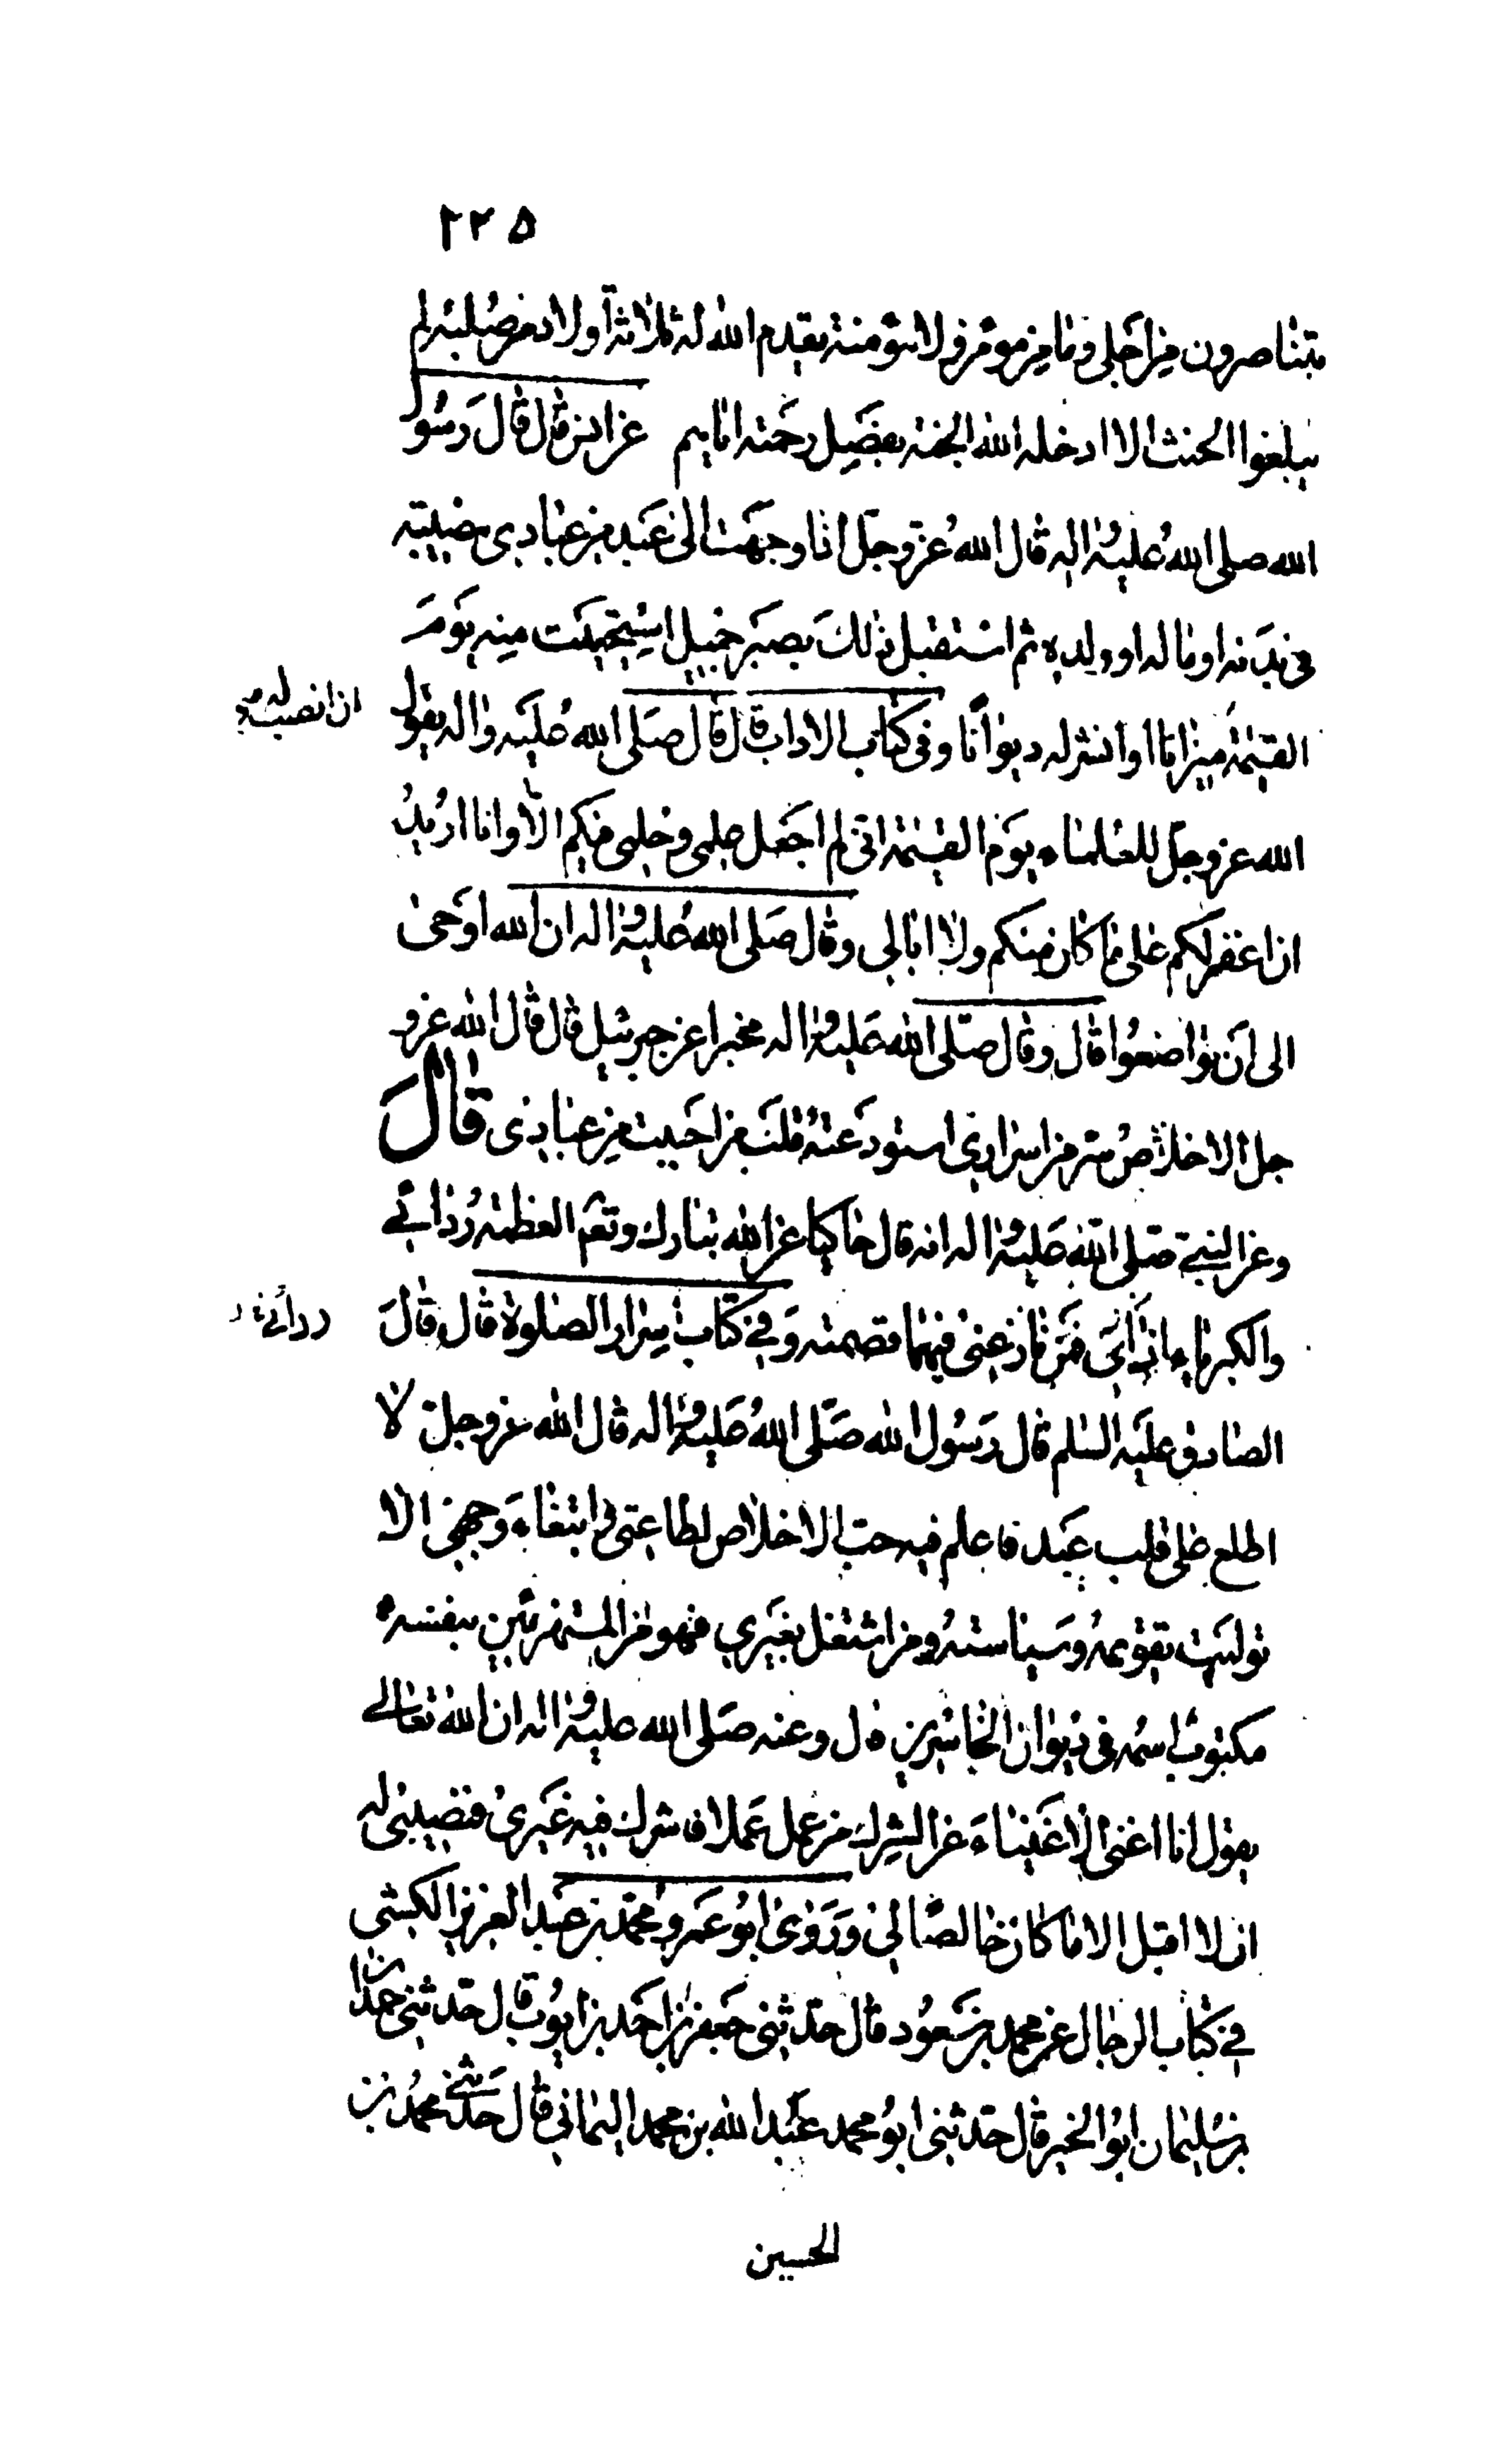 ٢٢٥
يتناصرون من اجلى وما من مؤمن ولا مؤمنة يقدم الله له ثلاثة اولاد من صلبه لم
يبلغوا الحنث الا ادخله الله الجنة بفضل رحمته اياهم عن انس قال قال رسول
الله صلى الله عليه واله قال الله عز وجل اذا وجهت الى عبد من عبادى مصيبة
فى بدنه او ماله او ولده ثم استقبل ذلك بصبر جميل استحييت منه يوم
القيمة ميزانا او انشر له ديوانا وفى كتاب الاداب قال قال صلى الله عليه واله يقول
ان انصب له
الله عز وجل للعلماء يوم القيمة انى لم اجعل علمى وحلمى فيكم الا وانا اريد
ان اغفر لكم على ما كان منكم ولا ابالى وقال صلى الله عليه واله ان الله اوحى
الى ان تواضعوا قال وقال صلى الله عليه واله مخبرا عن جبرئيل قال قال الله عز و
جل الاخلاص سر من اسرارى استودعته قلب من احببت من عبادى قال
وعن النبى صلى الله عليه واله انه قال حاكيا عن الله تبارك وتعم العظمة ردائى
والكبرياء فمن نازعنى فيهما قصمته وفى كتاب اسرار الصلوة قال قال
ردائى
الصادق عليه السلم قال رسول الله صلى الله عليه واله قال الله عز وجل لا
اطلع على قلب عبد فاعلم فيه حب الاخلاص لطاعتى وابتغاء وجهى الا
توليت تقويمه وسياسته ومن اشتغل بغيرى فهو من المستهزئين بنفسه
مكتوب اسمه فى ديوان الخاسرين قال وعنه صلى الله عليه واله ان الله تعالى
يقول انا اغنى الاغنياء عن الشرك من عمل عملا فاشرك فيه غيرى فنصيبى له
ان لا اقبل الا ما كان خالصا لى وروى ابو عمرو محمد بن عبد العزيز الكشى
فى كتاب الرجال عن محمد بن مسعود قال حدثنى جعفر بن احمد بن ايوب قال حدثنى حمدان
بن سليمان ابو الخير قال حدثنى ابو محمد عبد الله بن محمد اليمانى قال حدثنى محمد بن
الحسين